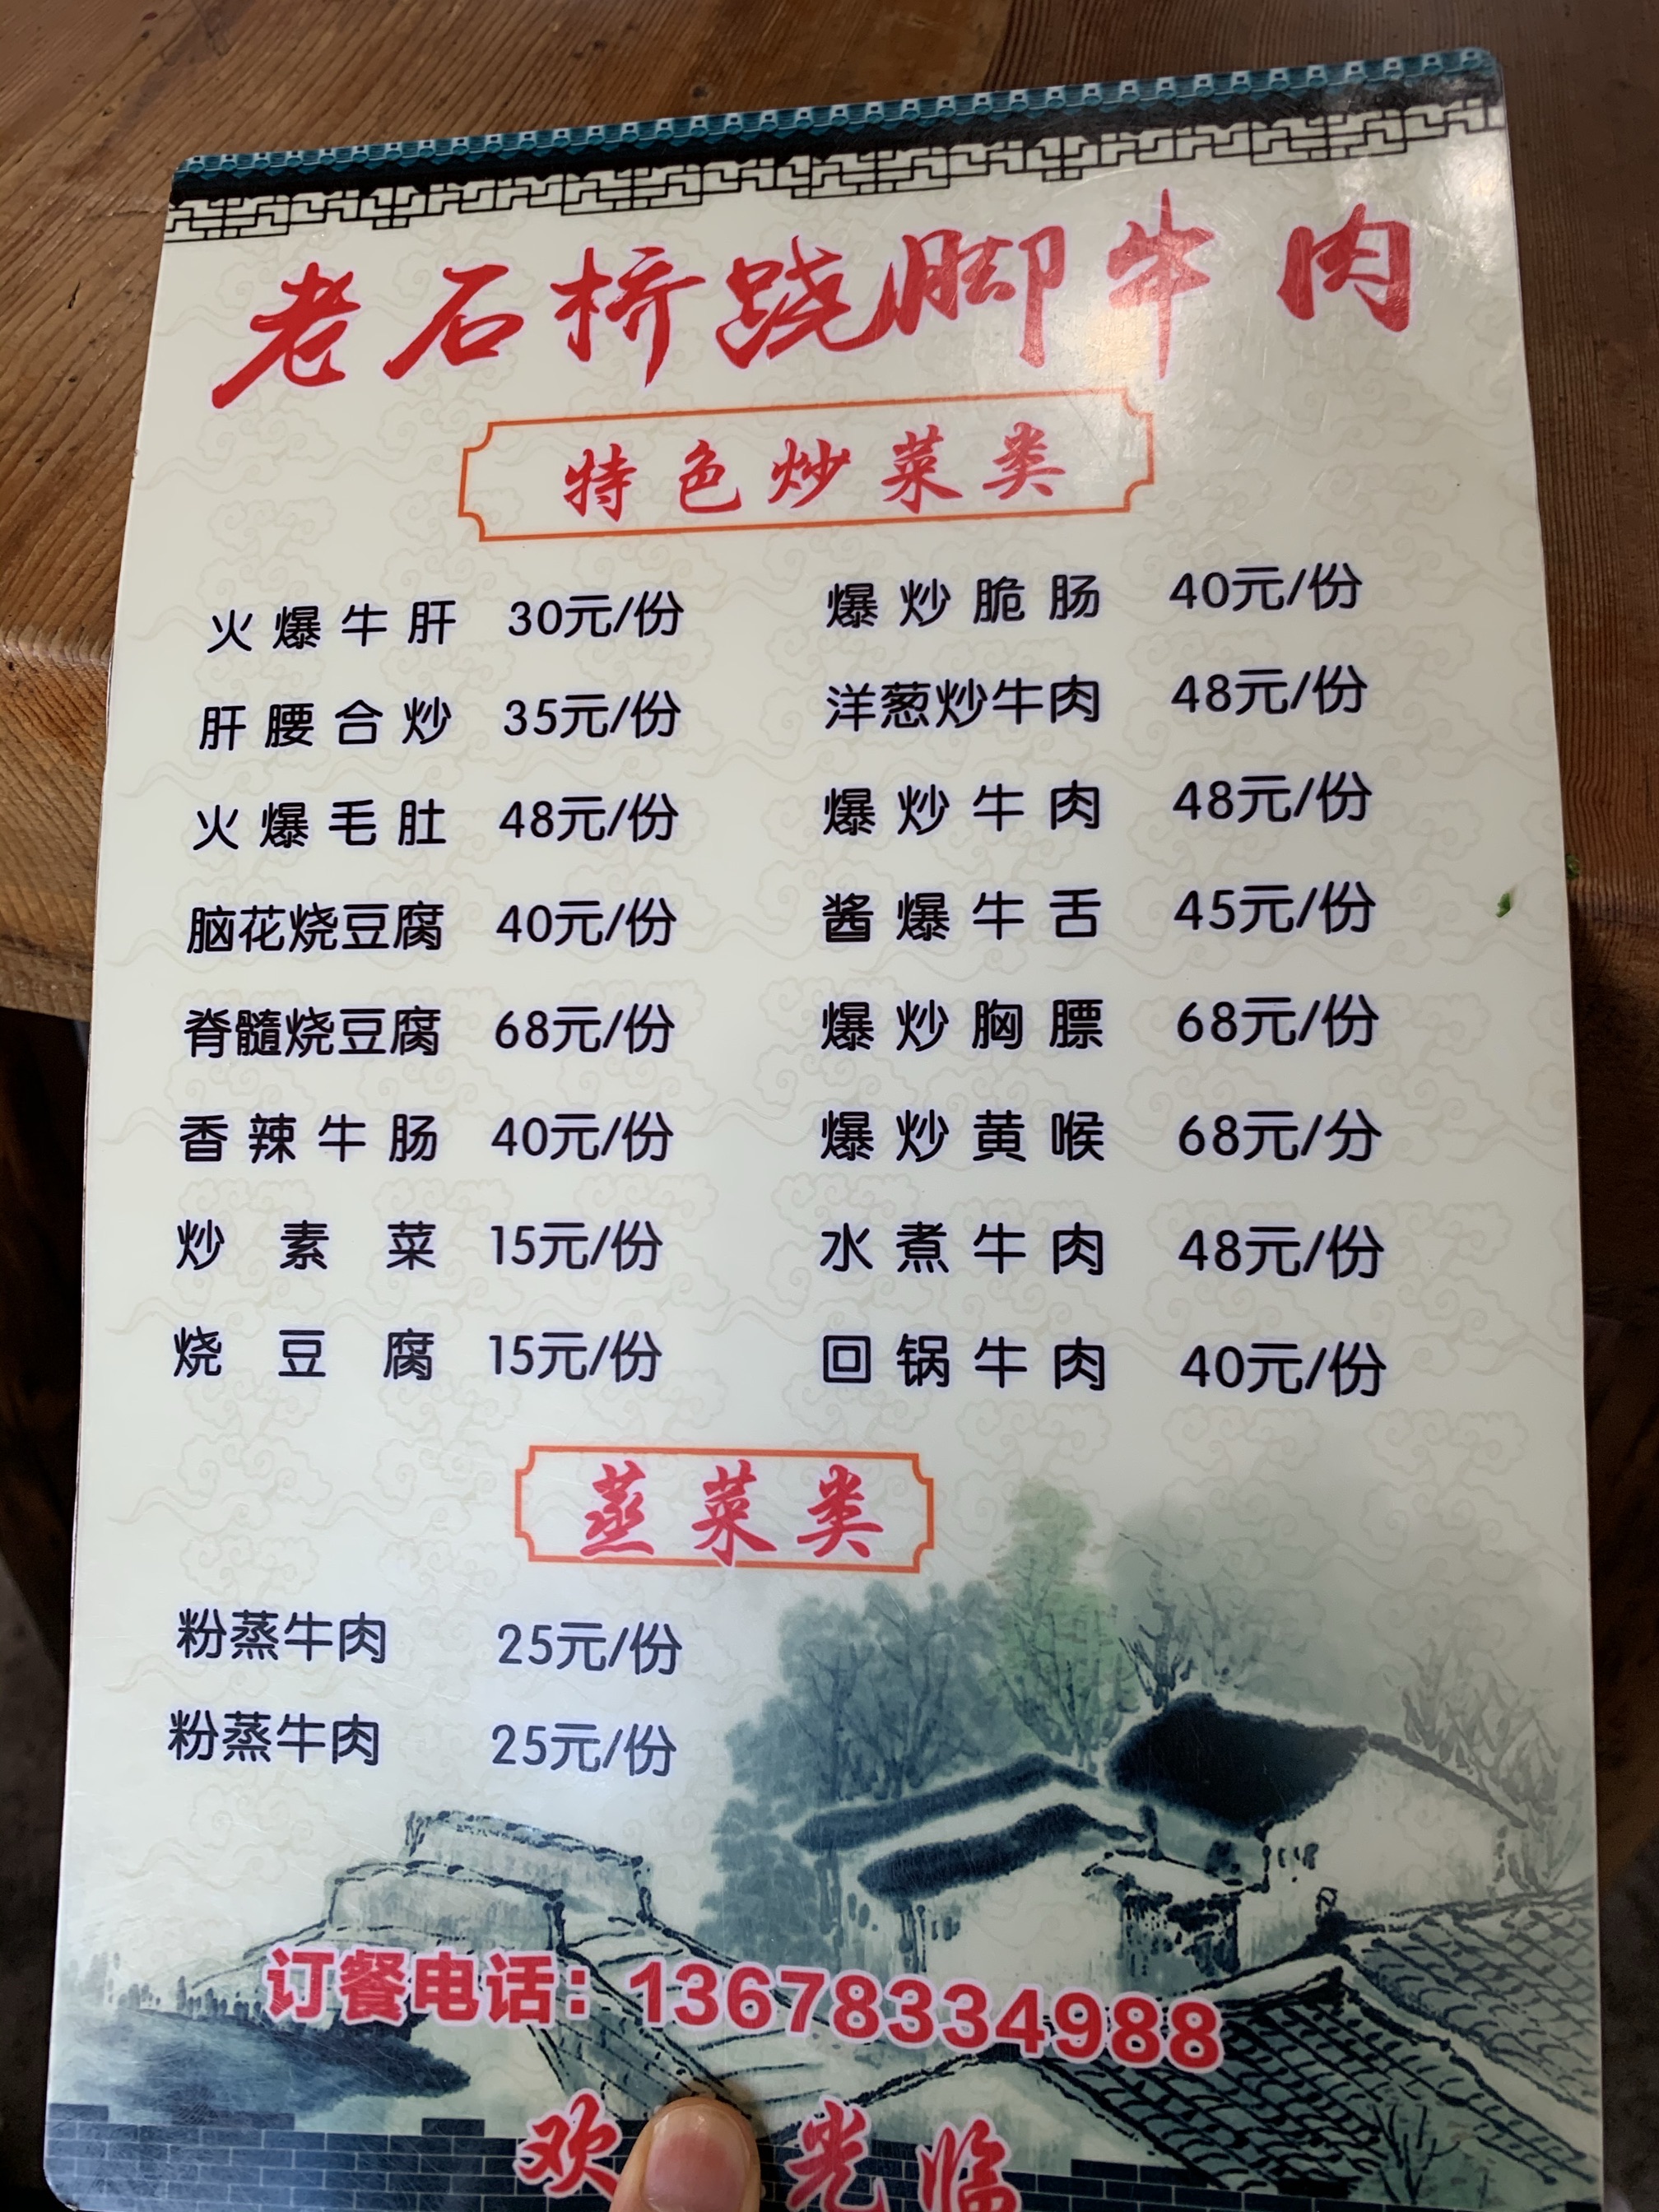 老石桥跷脚牛肉
特色炒菜类
火爆牛肝 30元/份
爆炒脆肠 40元/份
肝腰合炒 35元/份
洋葱炒牛肉 48元/份
火爆毛肚 48元/份
爆炒牛肉 48元/份
脑花烧豆腐 40元/份
酱爆牛舌 45元/份
脊髓烧豆腐 68元/份
爆炒胸膘 68元/份
香辣牛肠 40元/份
爆炒黄喉 68元/分
炒素菜 15元/份
水煮牛肉 48元/份
烧豆腐 15元/份
回锅牛肉 40元/份
蒸菜类
粉蒸牛肉 25元/份
粉蒸牛肉 25元/份
订餐电话：13678334988
欢 光临